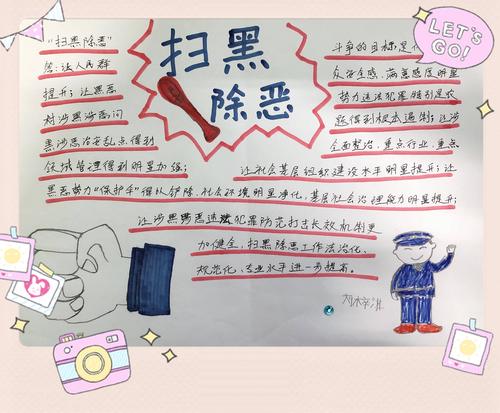 扫黑
除恶
LET'S
GO!
"扫黑除恶"
斗争的目标是
让人民群
众安全感、满意度明显
提升；让黑恶
势力违法犯罪特别是农
村涉黑涉恶问
题得到根本遏制；让涉
黑涉恶治安乱点得到
全面整治、重点行业、重点
领域管理得到明显加强；
让社会基层组织建设水平明显提升；让
黑恶势力"保护子"得以铲除，社会环境明显净化，基层社会治理能力明显提升；
让涉黑涉恶违法犯罪防范打击长效机制更
加健全，扫黑除恶工作法治化、
规范化、专业水平进一步提高。